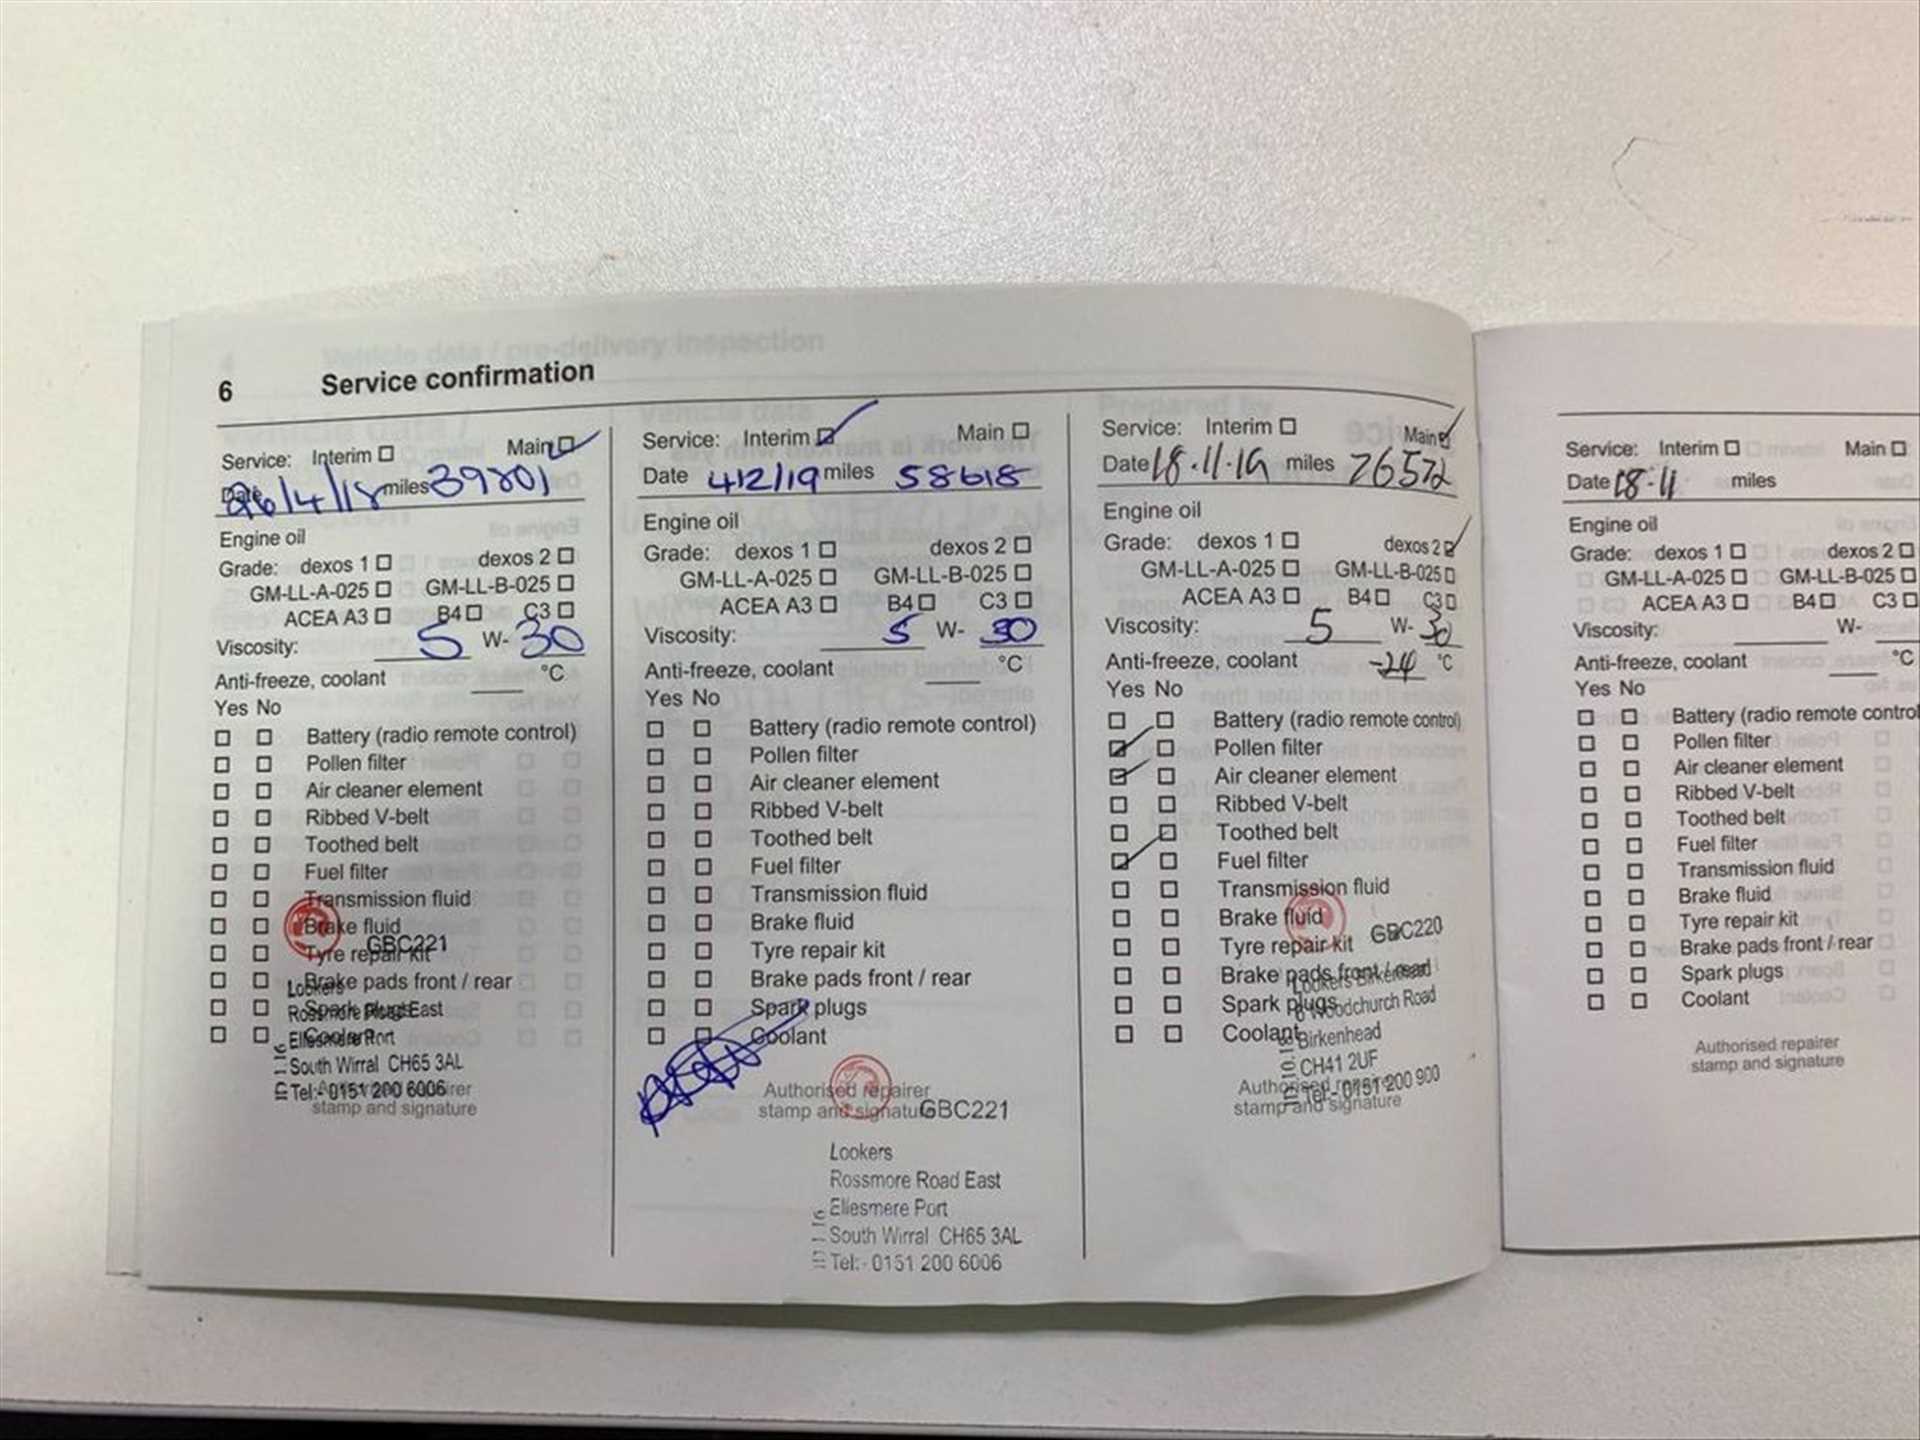 6 Service confirmation
Service: Interim Main
Date 26/4/18 miles 39801
Engine oil
Grade: dexos 1 dexos 2
GM-LL-A-025 GM-LL-B-025
ACEA A3 B4 C3
Viscosity: 5 W- 30
Anti-freeze, coolant °C
Yes No
Battery (radio remote control)
Pollen filter
Air cleaner element
Ribbed V-belt
Toothed belt
Fuel filter
Transmission fluid
Brake fluid
GBC221
Tyre repair kit
Brake pads front / rear
Lookers
Spark plugs
Rossmore Road East
Coolant
Ellesmere Port
South Wirral CH65 3AL
Tel:- 0151 200 6006
Authorised repairer
stamp and signature
Service: Interim Main
Date 4/2/19 miles 58618
Engine oil
Grade: dexos 1 dexos 2
GM-LL-A-025 GM-LL-B-025
ACEA A3 B4 C3
Viscosity: 5 W- 30
Anti-freeze, coolant °C
Yes No
Battery (radio remote control)
Pollen filter
Air cleaner element
Ribbed V-belt
Toothed belt
Fuel filter
Transmission fluid
Brake fluid
Tyre repair kit
Brake pads front / rear
Spark plugs
Coolant
Authorised repairer
stamp and signature
GBC221
Lookers
Rossmore Road East
Ellesmere Port
South Wirral CH65 3AL
Tel:- 0151 200 6006
Service: Interim Main
Date 18.11.19 miles 76572
Engine oil
Grade: dexos 1 dexos 2
GM-LL-A-025 GM-LL-B-025
ACEA A3 B4 C3
Viscosity: 5 W- 30
Anti-freeze, coolant -24 °C
Yes No
Battery (radio remote control)
Pollen filter
Air cleaner element
Ribbed V-belt
Toothed belt
Fuel filter
Transmission fluid
Brake fluid
GBC220
Tyre repair kit
Brake pads front / rear
Lookers Birkenhead
Spark plugs
Woodchurch Road
Coolant
Birkenhead
CH41 2UF
Authorised repairer
Tel:- 0151 200 900
stamp and signature
Service: Interim Main
Date 18.11 miles
Engine oil
Grade: dexos 1 dexos 2
GM-LL-A-025 GM-LL-B-025
ACEA A3 B4 C3
Viscosity: W-
Anti-freeze, coolant °C
Yes No
Battery (radio remote control
Pollen filter
Air cleaner element
Ribbed V-belt
Toothed belt
Fuel filter
Transmission fluid
Brake fluid
Tyre repair kit
Brake pads front / rear
Spark plugs
Coolant
Authorised repairer
stamp and signature